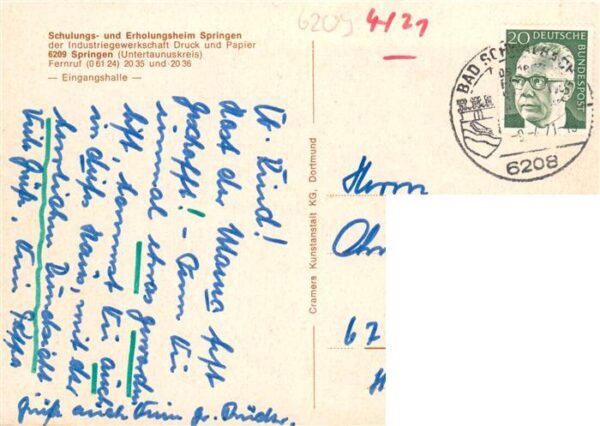 Schulungs- und Erholungsheim Springen
der Industriegewerkschaft Druck und Papier
6209 Springen (Untertaunuskreis)
Fernruf (0 61 24) 20 35 und 20 36
— Eingangshalle —
6209
4/21
20 DEUTSCHE
BUNDESPOST
BAD SCHWALBACH
6208
Cramers Kunstanstalt KG, Dortmund
Kind!
Hast der Mama
geschafft! – Wenn Du
einmal etwas geworden
bist, kommst Du auch
in dieses Haus, mit der
herrlichen Rundsicht
Viele Grüße. Dein
Grüß auch Dein gr. Bruder.
Herrn
67